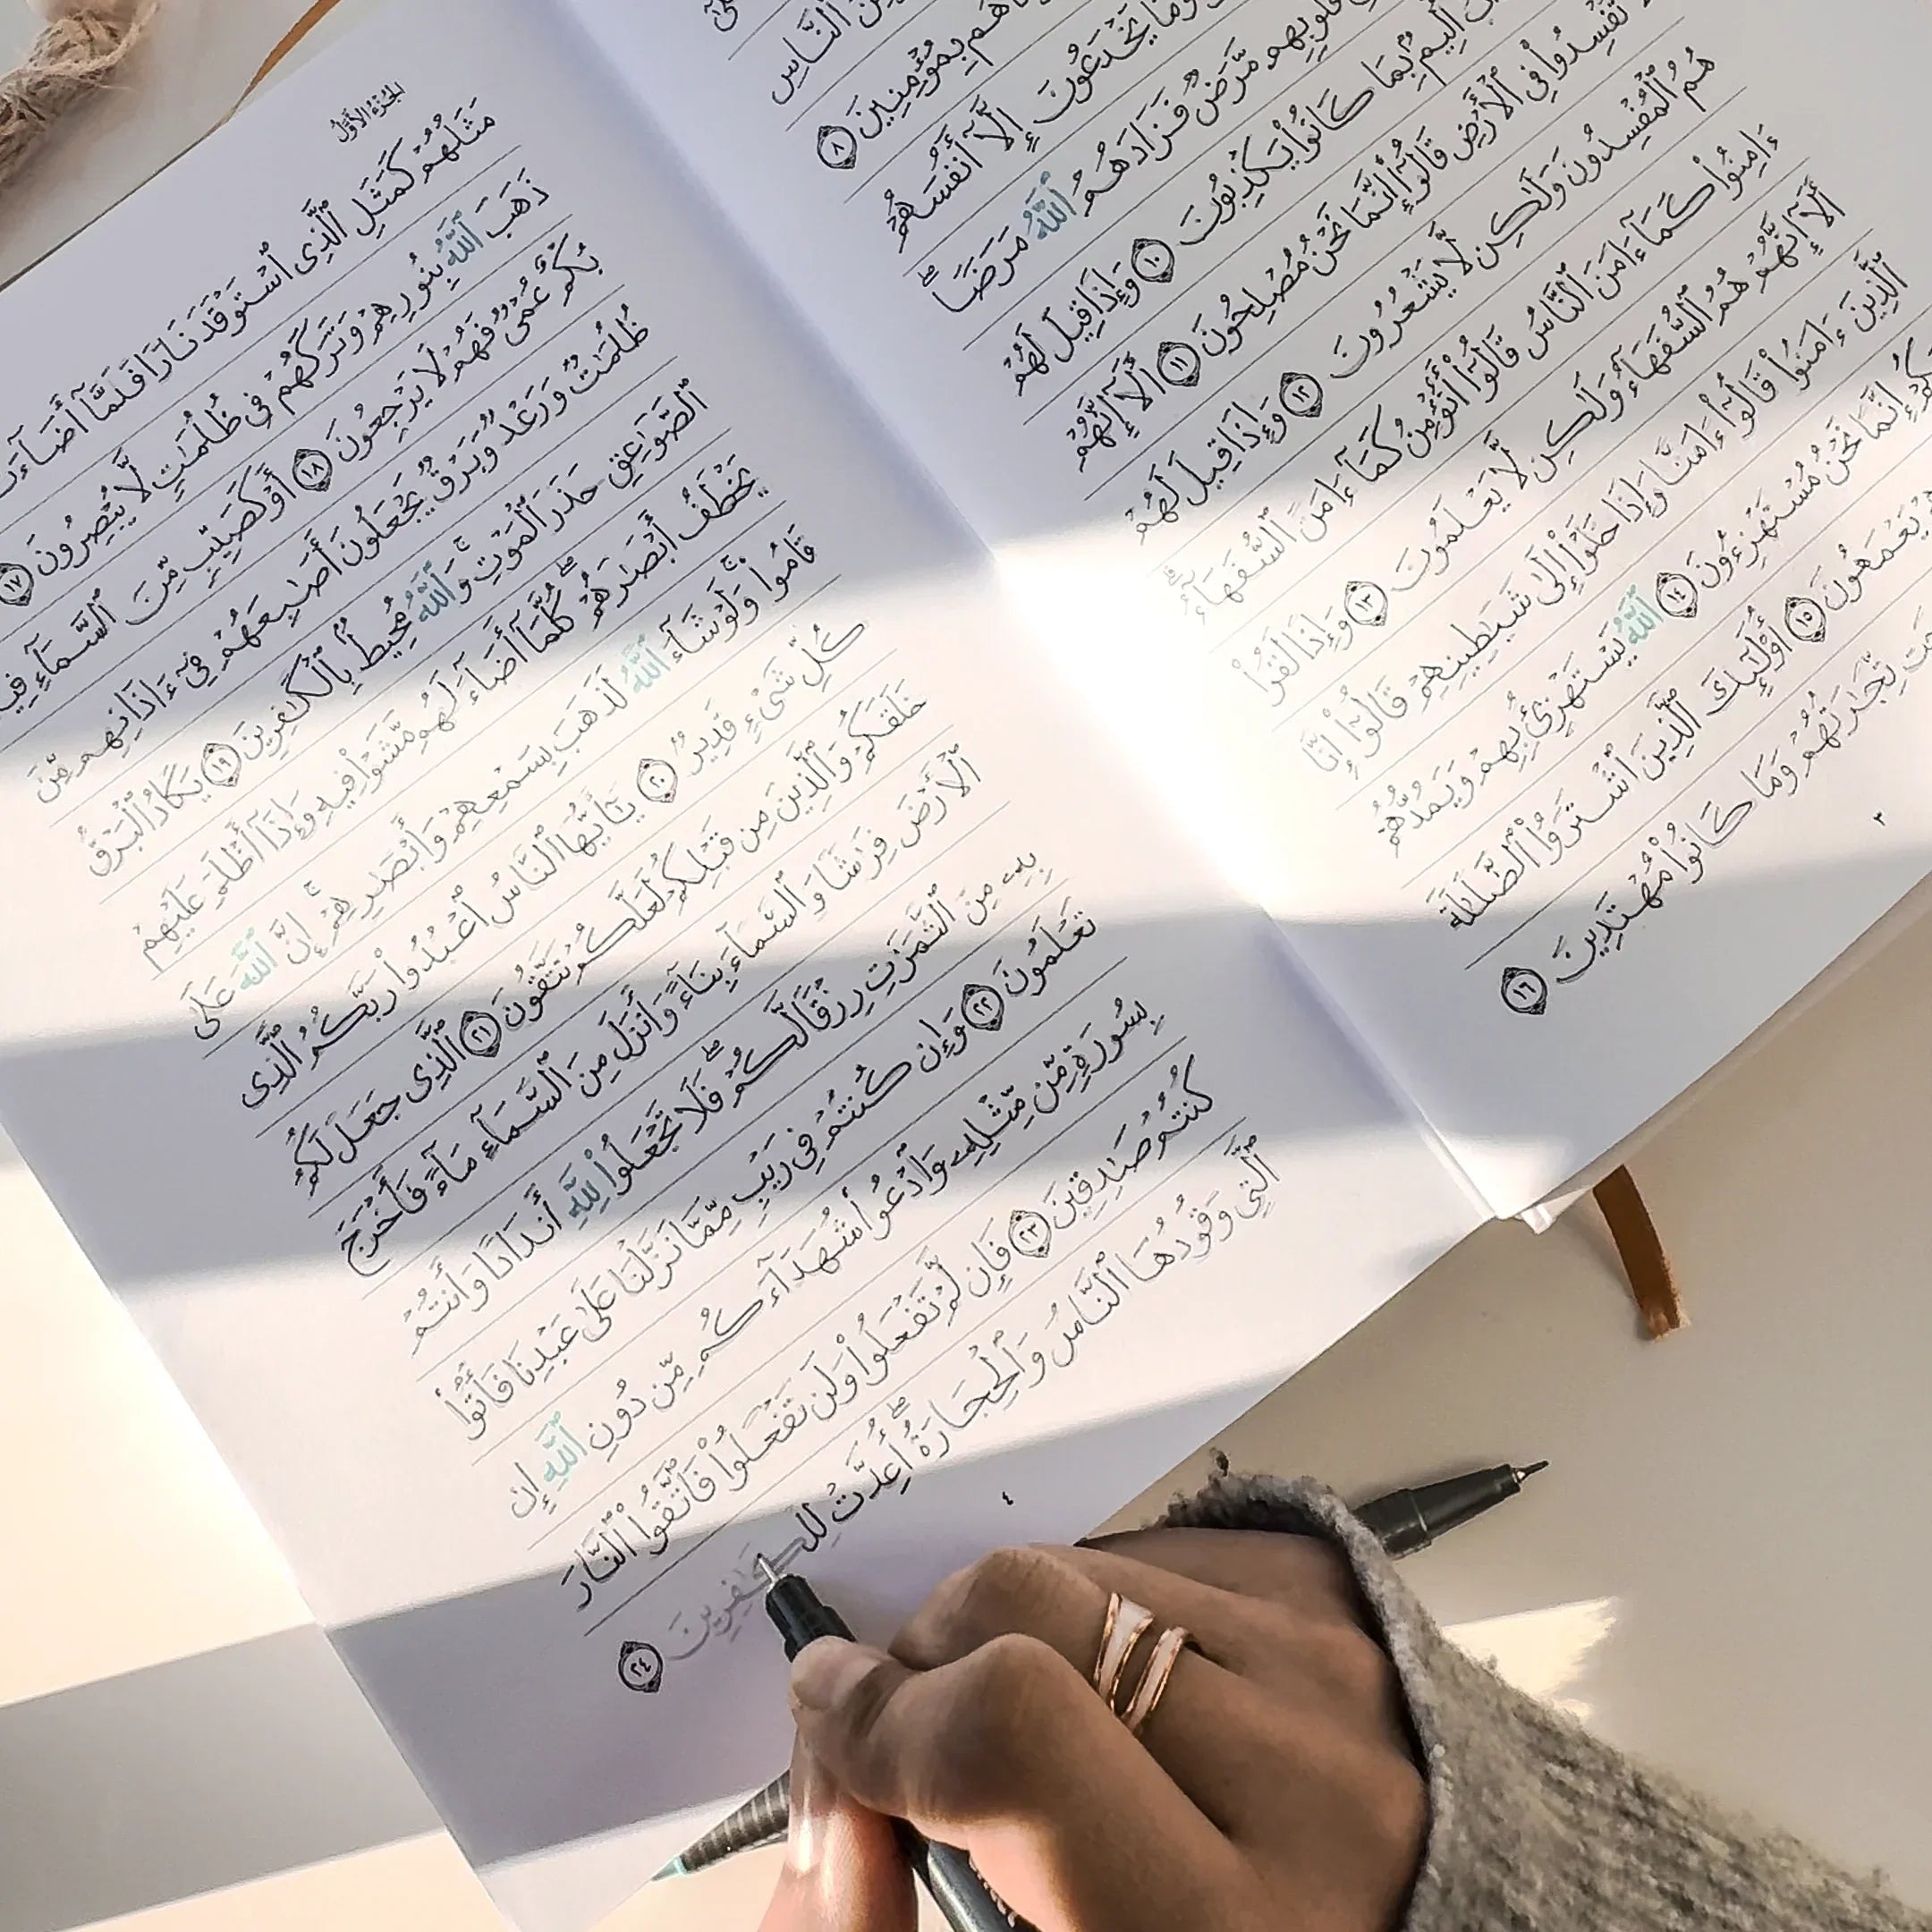 ٱلنَّاسِ
هُم بِمُؤۡمِنِينَ ٨
وَمَا يَخۡدَعُونَ إِلَّآ أَنفُسَهُمۡ
قُلُوبِهِم مَّرَضٞ فَزَادَهُمُ ٱللَّهُ مَرَضٗاۖ
أَلِيمُۢ بِمَا كَانُواْ يَكۡذِبُونَ ١٠ وَإِذَا قِيلَ لَهُمۡ
تُفۡسِدُواْ فِي ٱلۡأَرۡضِ قَالُوٓاْ إِنَّمَا نَحۡنُ مُصۡلِحُونَ ١١ أَلَآ إِنَّهُمۡ
هُمُ ٱلۡمُفۡسِدُونَ وَلَٰكِن لَّا يَشۡعُرُونَ ١٢ وَإِذَا قِيلَ لَهُمۡ
ءَامِنُواْ كَمَآ ءَامَنَ ٱلنَّاسُ قَالُوٓاْ أَنُؤۡمِنُ كَمَآ ءَامَنَ ٱلسُّفَهَآءُۗ
أَلَآ إِنَّهُمۡ هُمُ ٱلسُّفَهَآءُ وَلَٰكِن لَّا يَعۡلَمُونَ ١٣ وَإِذَا لَقُواْ
ٱلَّذِينَ ءَامَنُواْ قَالُوٓاْ ءَامَنَّا وَإِذَا خَلَوۡاْ إِلَىٰ شَيَٰطِينِهِمۡ قَالُوٓاْ إِنَّا
إِنَّمَا نَحۡنُ مُسۡتَهۡزِءُونَ ١٤ ٱللَّهُ يَسۡتَهۡزِئُ بِهِمۡ وَيَمُدُّهُمۡ
يَعۡمَهُونَ ١٥ أُوْلَٰٓئِكَ ٱلَّذِينَ ٱشۡتَرَوُاْ ٱلضَّلَٰلَةَ
تِّجَٰرَتُهُمۡ وَمَا كَانُواْ مُهۡتَدِينَ ١٦
٣
الجُزْءُ الأَوَّلُ
مَثَلُهُمۡ كَمَثَلِ ٱلَّذِي ٱسۡتَوۡقَدَ نَارٗا فَلَمَّآ أَضَآءَتۡ
ذَهَبَ ٱللَّهُ بِنُورِهِمۡ وَتَرَكَهُمۡ فِي ظُلُمَٰتٖ لَّا يُبۡصِرُونَ ١٧
بُكۡمٌ عُمۡيٞ فَهُمۡ لَا يَرۡجِعُونَ ١٨ أَوۡ كَصَيِّبٖ مِّنَ ٱلسَّمَآءِ فِيهِ
ظُلُمَٰتٞ وَرَعۡدٞ وَبَرۡقٞ يَجۡعَلُونَ أَصَٰبِعَهُمۡ فِيٓ ءَاذَانِهِم مِّنَ
ٱلصَّوَٰعِقِ حَذَرَ ٱلۡمَوۡتِۚ وَٱللَّهُ مُحِيطُۢ بِٱلۡكَٰفِرِينَ ١٩ يَكَادُ ٱلۡبَرۡقُ
يَخۡطَفُ أَبۡصَٰرَهُمۡۖ كُلَّمَآ أَضَآءَ لَهُم مَّشَوۡاْ فِيهِ وَإِذَآ أَظۡلَمَ عَلَيۡهِمۡ
قَامُواْۚ وَلَوۡ شَآءَ ٱللَّهُ لَذَهَبَ بِسَمۡعِهِمۡ وَأَبۡصَٰرِهِمۡۚ إِنَّ ٱللَّهَ عَلَىٰ
كُلِّ شَيۡءٖ قَدِيرٞ ٢٠ يَٰٓأَيُّهَا ٱلنَّاسُ ٱعۡبُدُواْ رَبَّكُمُ ٱلَّذِي
خَلَقَكُمۡ وَٱلَّذِينَ مِن قَبۡلِكُمۡ لَعَلَّكُمۡ تَتَّقُونَ ٢١ ٱلَّذِي جَعَلَ لَكُمُ
ٱلۡأَرۡضَ فِرَٰشٗا وَٱلسَّمَآءَ بِنَآءٗ وَأَنزَلَ مِنَ ٱلسَّمَآءِ مَآءٗ فَأَخۡرَجَ
بِهِۦ مِنَ ٱلثَّمَرَٰتِ رِزۡقٗا لَّكُمۡۖ فَلَا تَجۡعَلُواْ لِلَّهِ أَندَادٗا وَأَنتُمۡ
تَعۡلَمُونَ ٢٢ وَإِن كُنتُمۡ فِي رَيۡبٖ مِّمَّا نَزَّلۡنَا عَلَىٰ عَبۡدِنَا فَأۡتُواْ
بِسُورَةٖ مِّن مِّثۡلِهِۦ وَٱدۡعُواْ شُهَدَآءَكُم مِّن دُونِ ٱللَّهِ إِن
كُنتُمۡ صَٰدِقِينَ ٢٣ فَإِن لَّمۡ تَفۡعَلُواْ وَلَن تَفۡعَلُواْ فَٱتَّقُواْ ٱلنَّارَ
ٱلَّتِي وَقُودُهَا ٱلنَّاسُ وَٱلۡحِجَارَةُۖ أُعِدَّتۡ لِلۡكَٰفِرِينَ ٢٤
٤